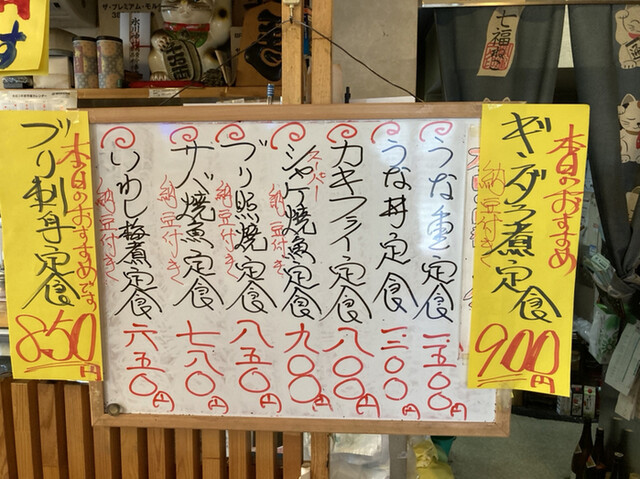 七福
ザ・プレミアム・モル
本日のおすすめ
ギンダラ煮定食
納豆付き
900円
うな重定食
一五〇〇円
うな丼定食
一三〇〇円
カキフライ定食
八〇〇円
スーパー
シャケ焼魚定食
納豆付き
九〇〇円
ブリ照焼定食
納豆付き
八五〇円
サバ焼魚定食
納豆付き
七八〇円
いわし梅煮定食
納豆付き
六五〇円
本日のおすすめです
ブリ刺丼定食
850円